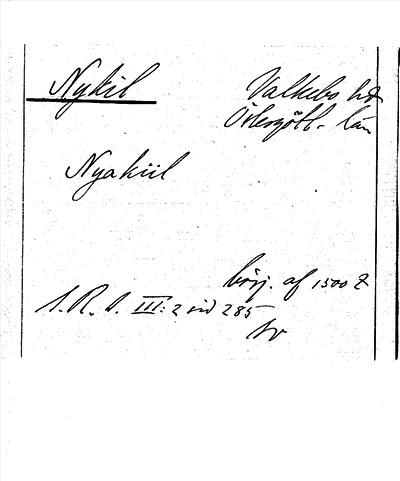 Nykil
Valkebo hd
Östergötl. län
Nyakiil
börj. af 1500 t
S. R. S. III: 2 sid 285